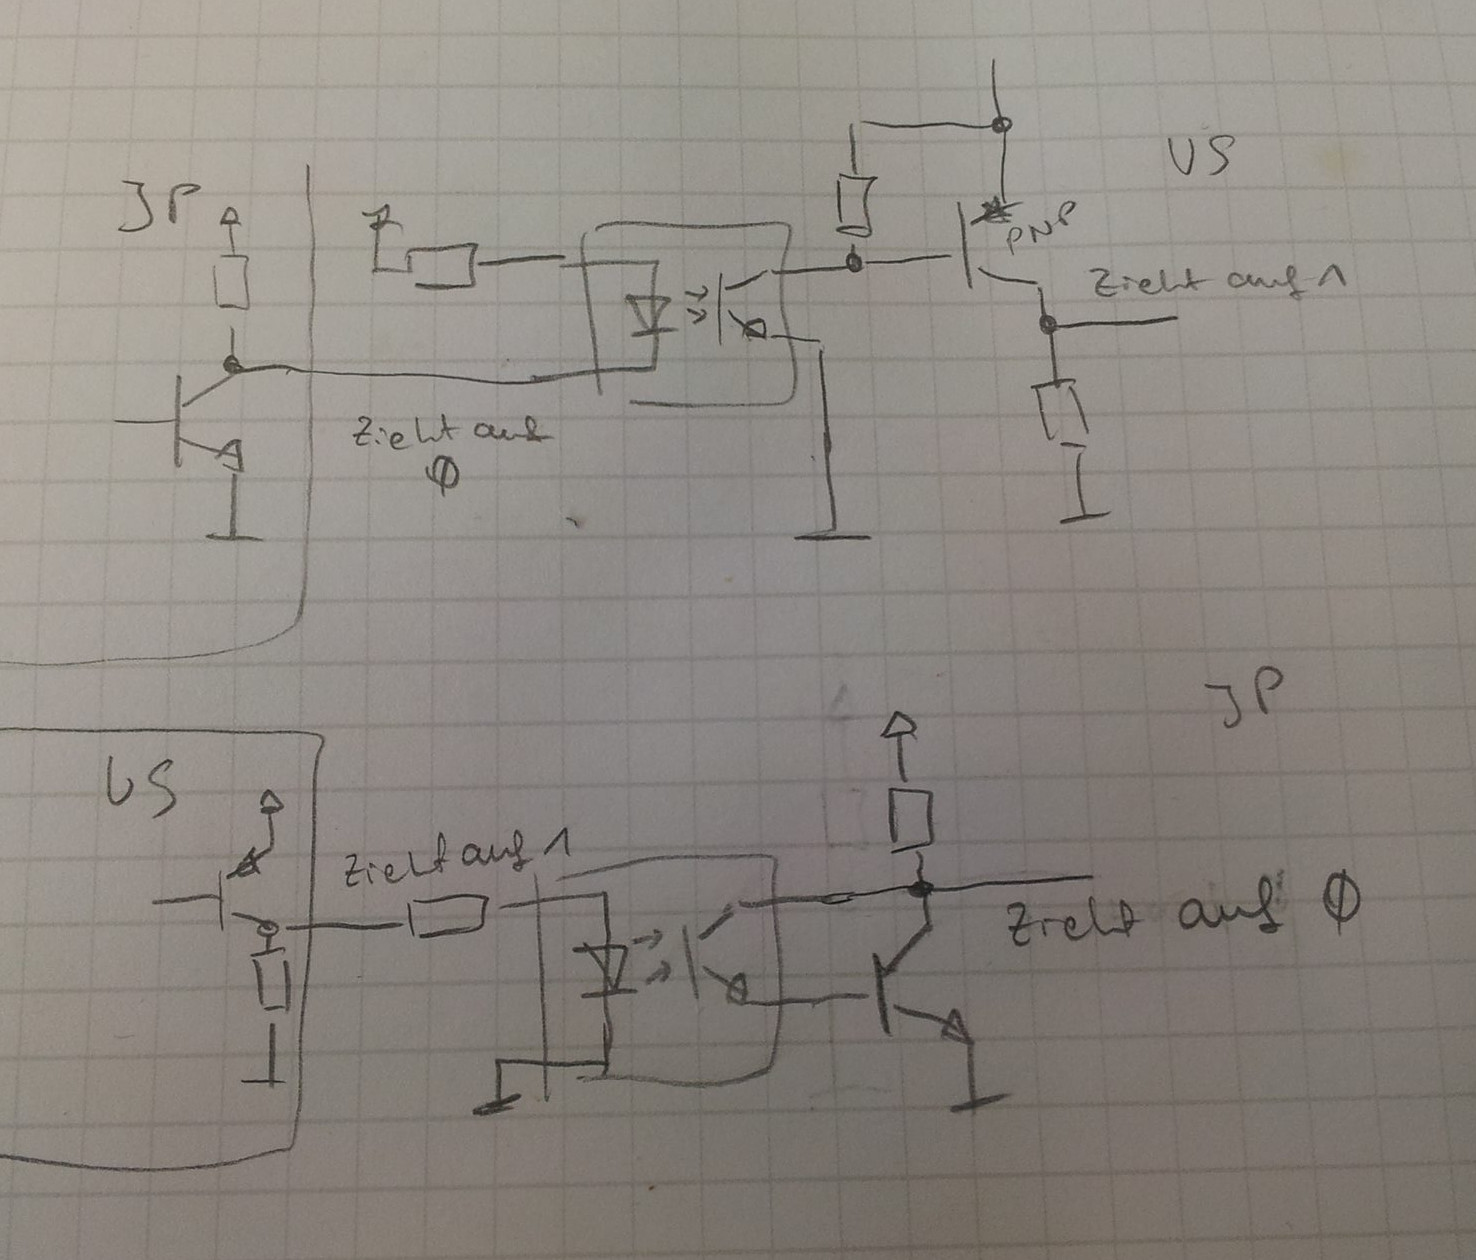 JP
US
PNP
Zieht auf 1
Zieht auf
0
JP
US
Zieht auf 1
Zieht auf 0